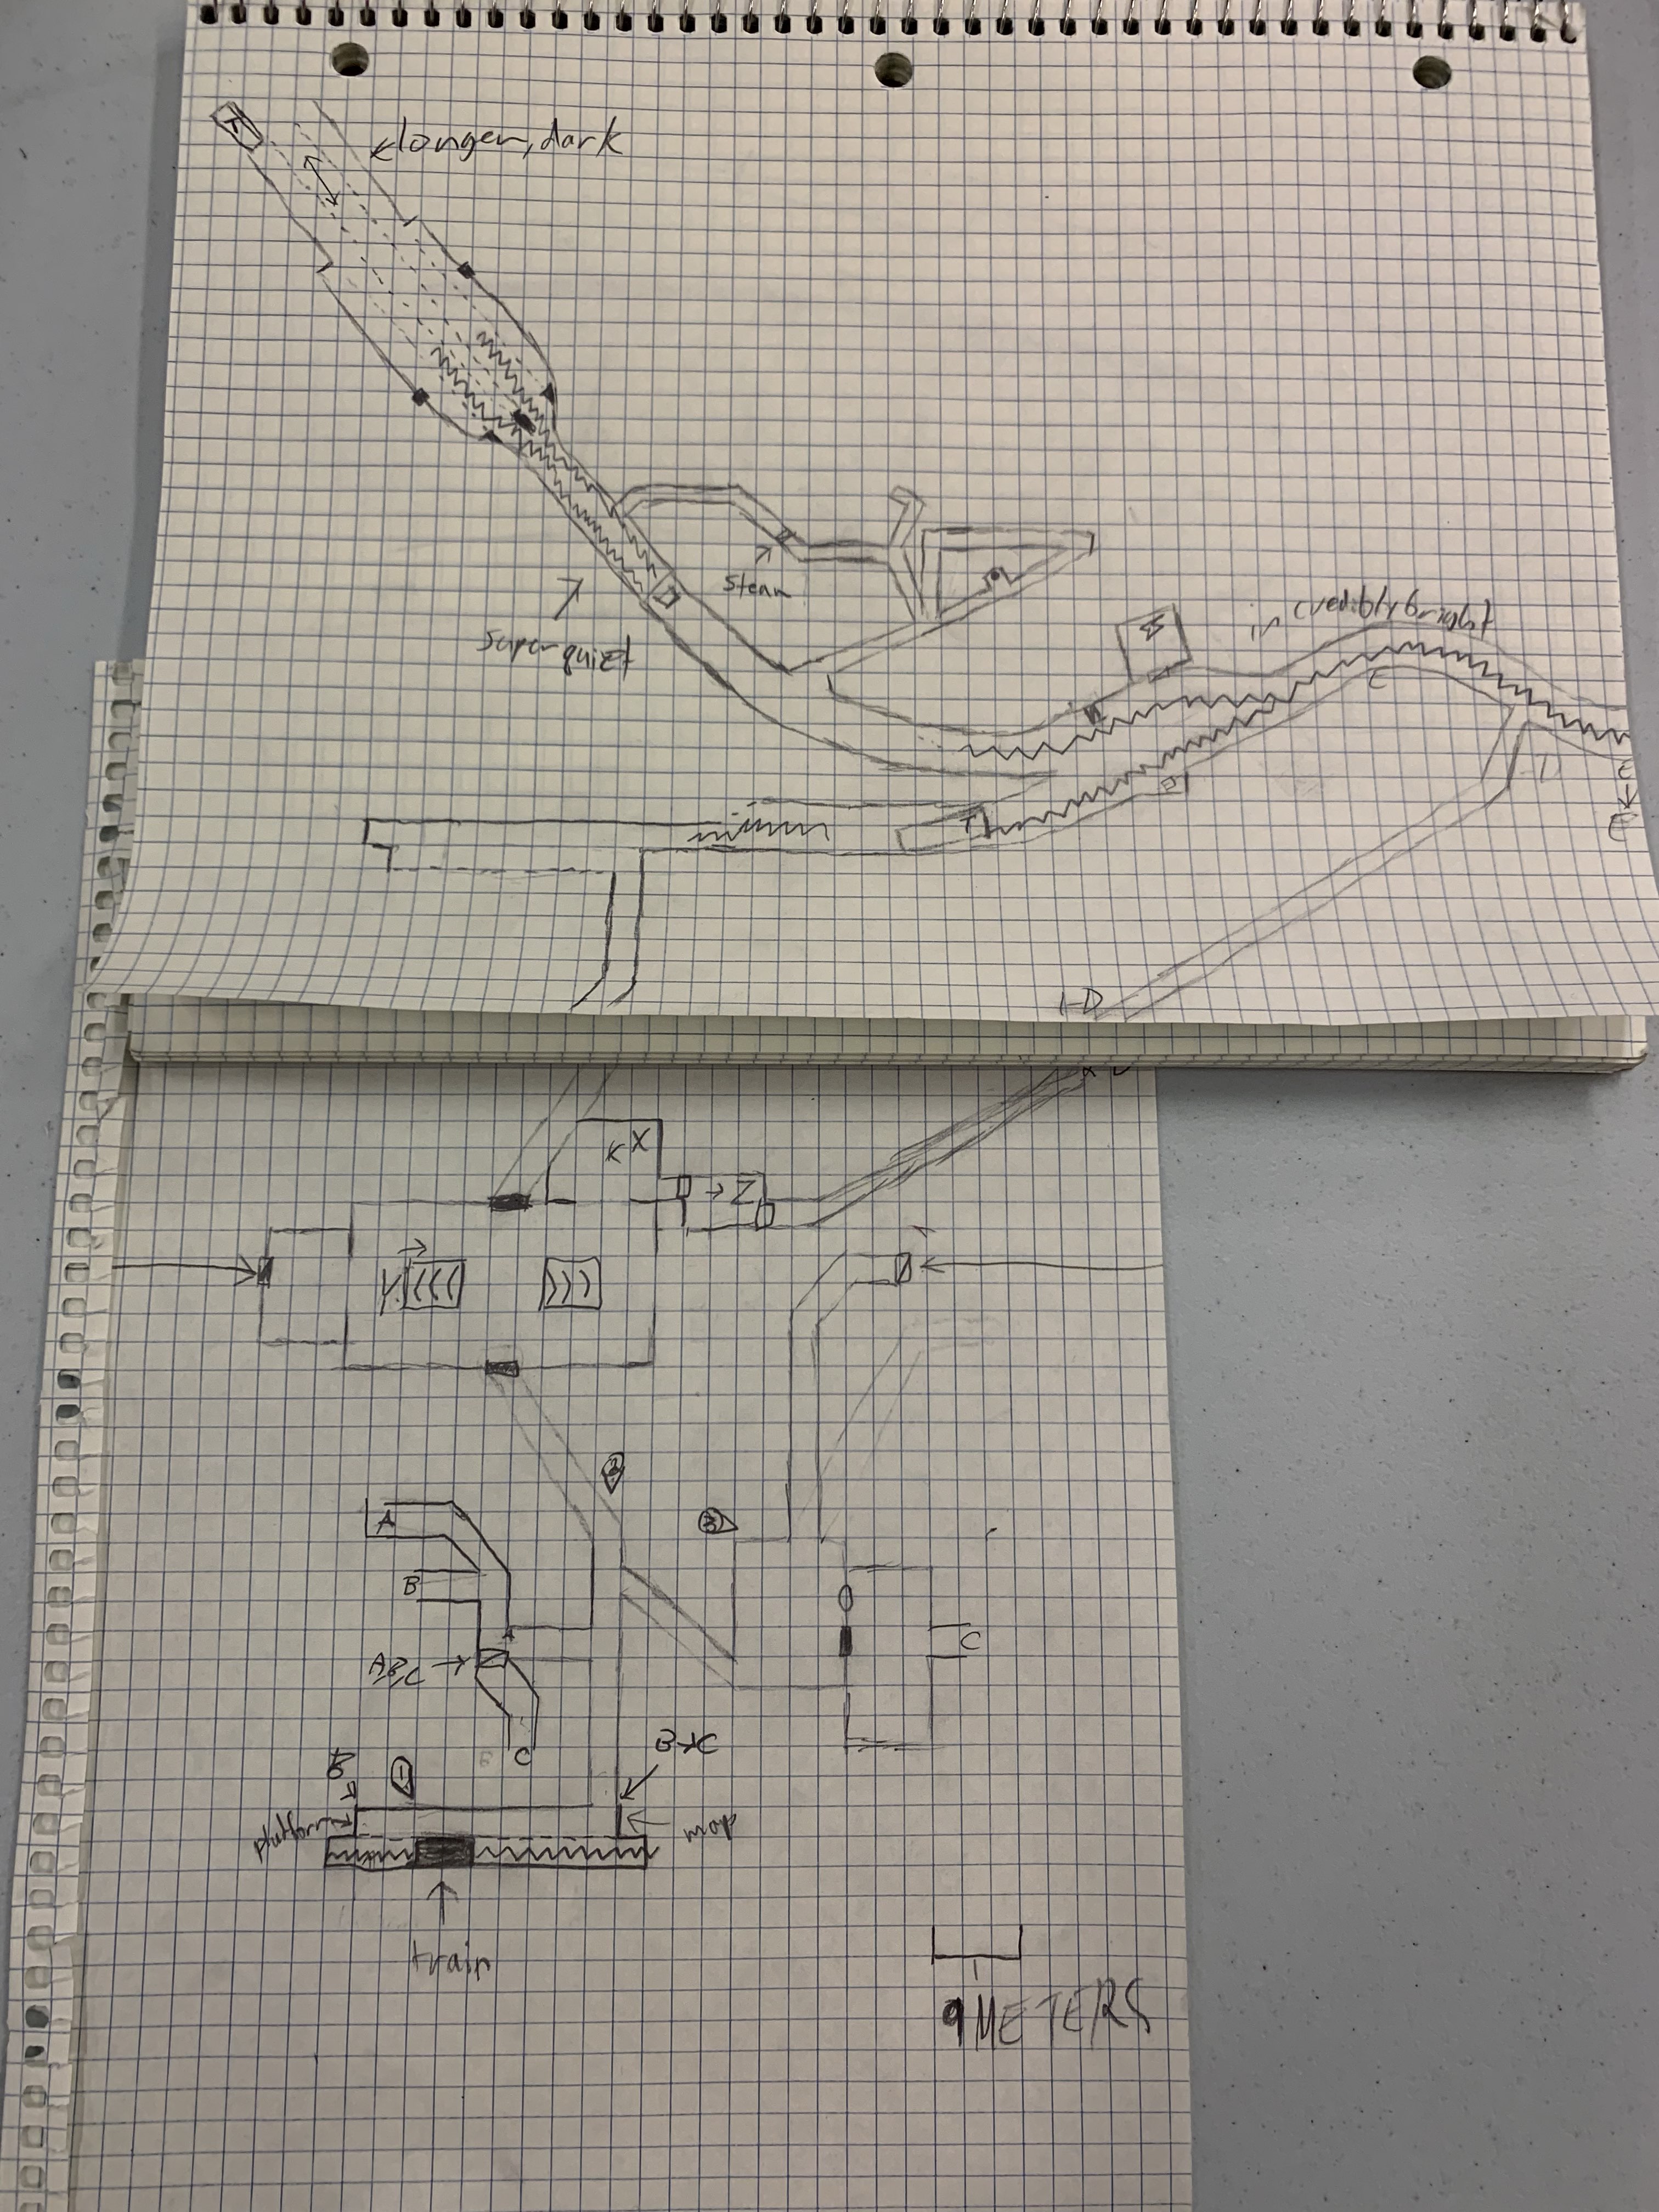 longer, dark
steam
super quiet
incredibly bright
E
D
T
1-D
X
K
→ Z
Y
2
3
A
B
A,B,C →
C
C
B→C
1
platform →
← map
train
9 METERS